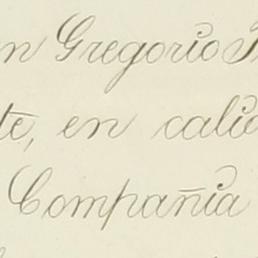 n Gregorio
te, en calid
Compañia